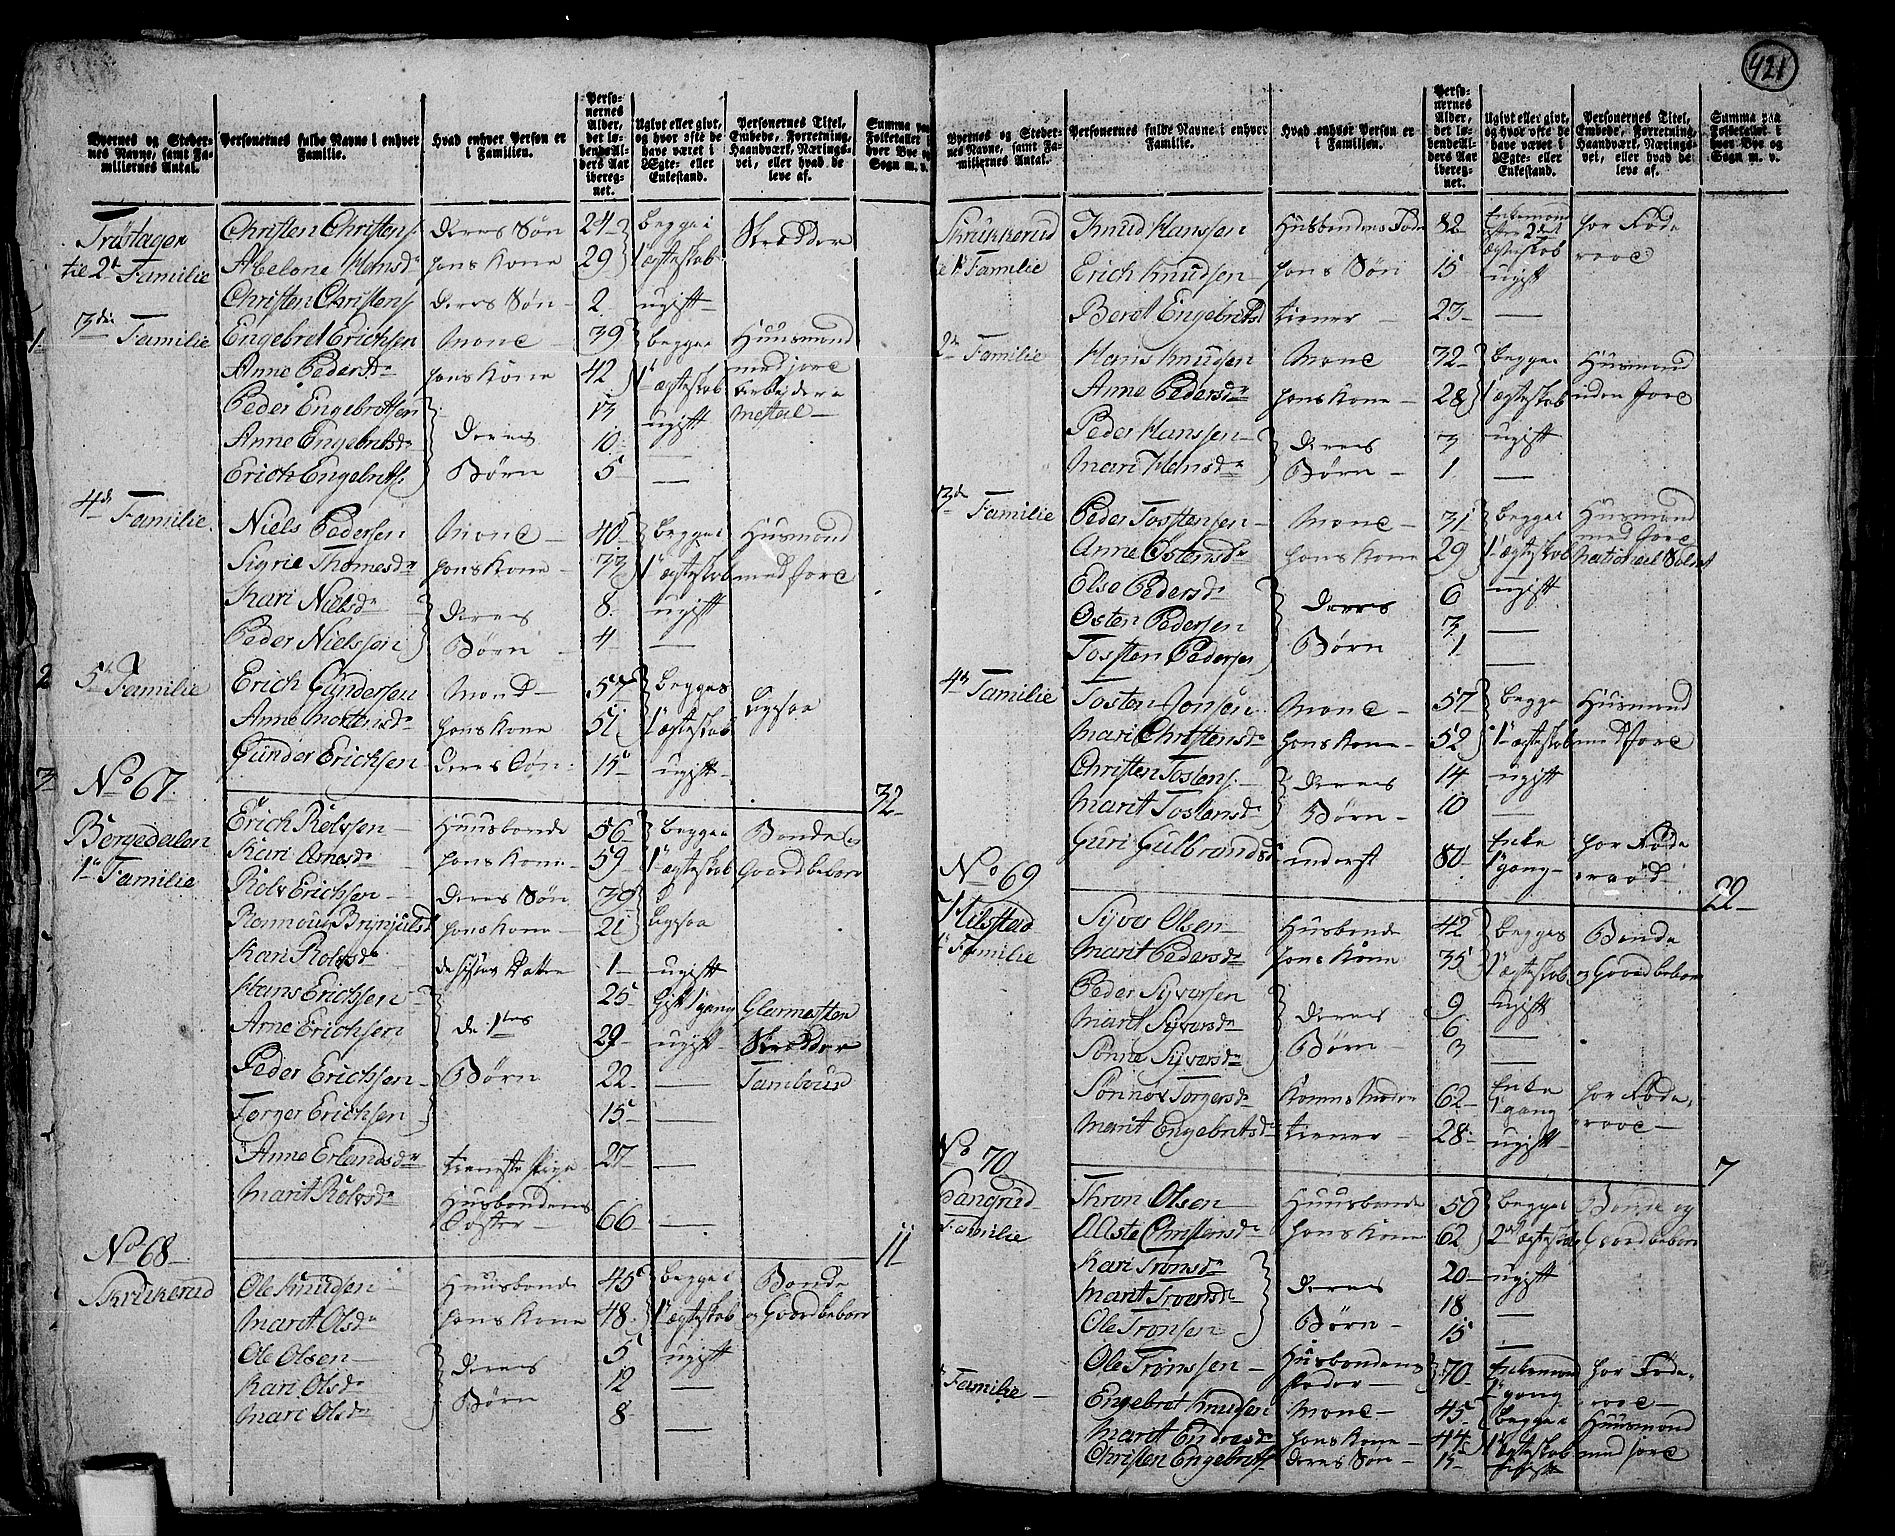 421
Byernes og Steder-
nes Navne, samt Fa-
miliernes Antal.
Personernes fulde Navne i enhver
Familie.
Hvad enhver Person er
i Familien.
Perso-
nernes
Alder,
det lø-
bende Al-
ders Aar
iberegnet.
Ugivt eller givt,
og hvor ofte de
have været i
Ægte- eller
Enkestand.
Personernes Titel,
Embede, Forretning,
Haandværk, Nærings-
vei, eller hvad de
leve af.
Summa paa
Folketallet i
hver Bye og
Sogn m. v.
Christen Christens. deres Søn 24 begge i Skrædder
til 2de Familie Abelone Hansd. hans Kone 29 1ste ægteskab
Christen Christens. deres Søn 2 ugift
3die Familie Engebret Erichsen Mand 39 begge i Huusmand
Anne Pedersd. hans Kone 42 1ste ægteskab med jord
Peder Engebretsen deres 13 ugift
Anne Engebretsd. 10 —
Erich Engebrets. Børn 5 —
4de Familie Niels Pedersen Mand 40 begge i Husmand
Sigrie Thomesd. hans Kone 33 1ste ægteskab med jord
Kari Nielsd. deres 8 ugift
Peder Nielssen Børn 4 —
5te Familie Erich Gundersen Mand 57 begge i ligesaa
Anne Mortensd. hans Kone 51 1ste ægteskab
Gunder Erichsen deres Søn 15 ugift
No 67 32
Bergedalen Erich Rolvsen Huusbonde 56 begge i Bonde og
1te Familie Kari Arnesd. hans Kone 59 1ste ægteskab Gaardbeboer
Rolv Erichsen deres Søn 39 ligesaa
hans Kone 21
Kari Rolvsd. 1 ugift
Hans Erichsen de 1stes 25 Gift 1 gang Glarmester
Arne Erichsen 29 ugift Skrædder
Peder Erichsen Børn 22 — Tambour
Torger Erichsen 15 —
Anne Erlandsd. tienestepige 27 —
Marit Rolvsd. Husbondens
Søster 66 —
No 68 11
Skrukerud Ole Knudsen Huusbonde 45 begge i Bonde
Marit Olsd. hans Kone 48 1ste ægteskab og Gaardbeboer
Ole Olsen deres 5 ugift
Kari Olsd. Børn 12 —
Mari Olsd. 8 —
Byernes og Steder-
nes Navne, samt Fa-
miliernes Antal.
Personernes fulde Navne i enhver
Familie.
Hvad enhver Person er
i Familien.
Perso-
nernes
Alder,
det lø-
bende Al-
ders Aar
iberegnet.
Ugivt eller givt,
og hvor ofte de
have været i
Ægte- eller
Enkestand.
Personernes Titel,
Embede, Forretning,
Haandværk, Nærings-
vei, eller hvad de
leve af.
Summa paa
Folketallet i
hver Bye og
Sogn m. v.
Skrukkerud Knud Hanssen Husbondens Fader 82 Enkemand efter 2det ægteskab har Føderaad
til 1te Familie Erich Knudsen hans Søn 15 ugift
Beret Engebretsd. tiener 23 —
2den Familie Hans Knudsen Mand 32 begge i Husmand
Anne Pedersd. hans Kone 28 1ste ægteskab uden jord
Peder Hanssen deres 3 ugift
Mari Hansd. Børn 1 —
3die Familie Peder Tostensen Mand 31 begge i Husmand med jord
Anne Ostensd. hans Kone 29 1ste ægteskab National Soldat
Else Pedersd. deres 6 ugift
Osten Pedersen 3 —
Tossten Pedersen Børn 1 —
4de Familie Tosten Jonsen Mand 57 begge i Husmand
Mari Christensd. hans Kone 52 1ste ægteskab med jord
Christen Tostens. deres 14 ugift
Marit Tostensd. Børn 10 —
Guri Gulbrandsd. inderst 80 Enke 1ste gang har Føderaad
No 69 22
Syver Olsen Husbonde 42 begge i Bonde
1te Familie Marit Pedersd. hans Kone 35 1ste ægteskab og Gaardbeboer
Peder Syversen deres 9 ugift
Marit Syversd. Børn 6 —
Sønne Syversd. 3 —
Sønnov Torgersd. Konens Moder 62 Enke 1ste gang har Føderaad
Marit Engebretsd. tiener 28 ugift
No 70 7
Thron Olsen Huusbonde 50 begge i Bonde og
Familie Aaste Christensd. hans Kone 62 2det ægteskab Gaardbeboer
Kari Tronsd. deres 20 ugift
Marit Tronsd. 18 —
Ole Tronsen Børn 15 —
Ole Tronssen Husbondens Fader 70 Enkemand 1ste gang har Føderaad
Familie Engebret Knudsen Mand 45 begge i Huusmand
Marit Endresd. hans Kone 44 1ste ægteskab med jord
Christen Engebrets. deres Søn 15 ugift